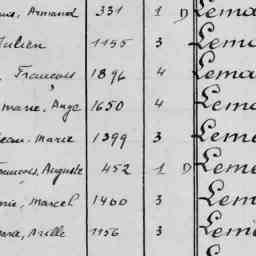 Armand 331 1 D Lema
Julien 1155 3 Lema
, François 1896 4 Lema
marie, Ange 1650 4 Lema
Jean-Marie 1399 3 Leme
François, Auguste 452 1 D Leme
, Marcel 1400 3 Leme
1156 3 Leme